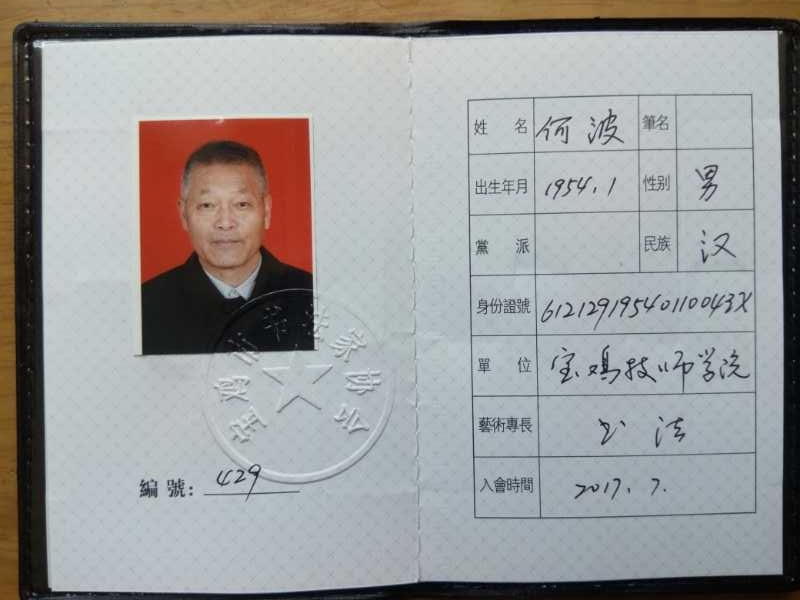 編 號: 429
姓 名 何波 筆名
出生年月 1954.1 性别 男
黨 派 民族 汉
身份證號 61212919540110043X
單 位 宝鸡技师学院
藝術專長 书法
入會時間 2017.7.